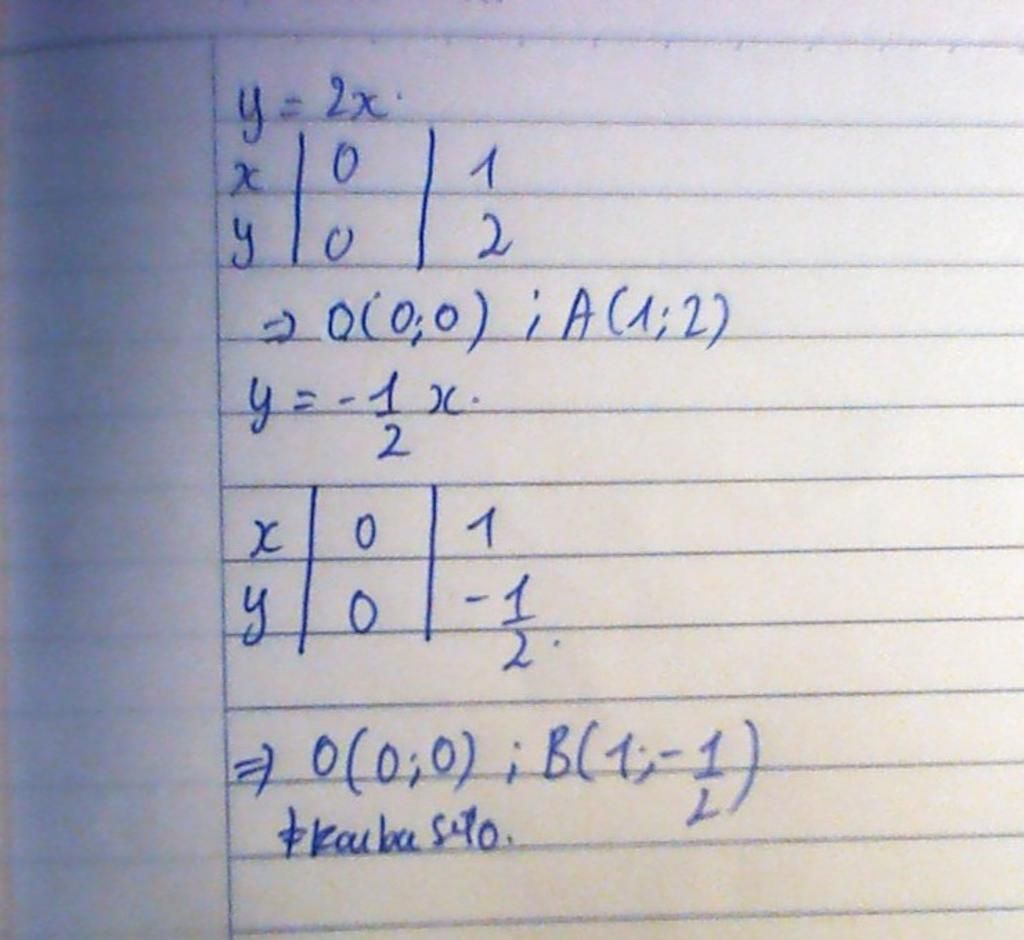 y = 2x.
x | 0 | 1
y | 0 | 2
⇒ O(0;0) ; A(1;2)
y = -1/2 x.
x | 0 | 1
y | 0 | -1/2.
⇒ O(0;0) ; B(1;-1/2)